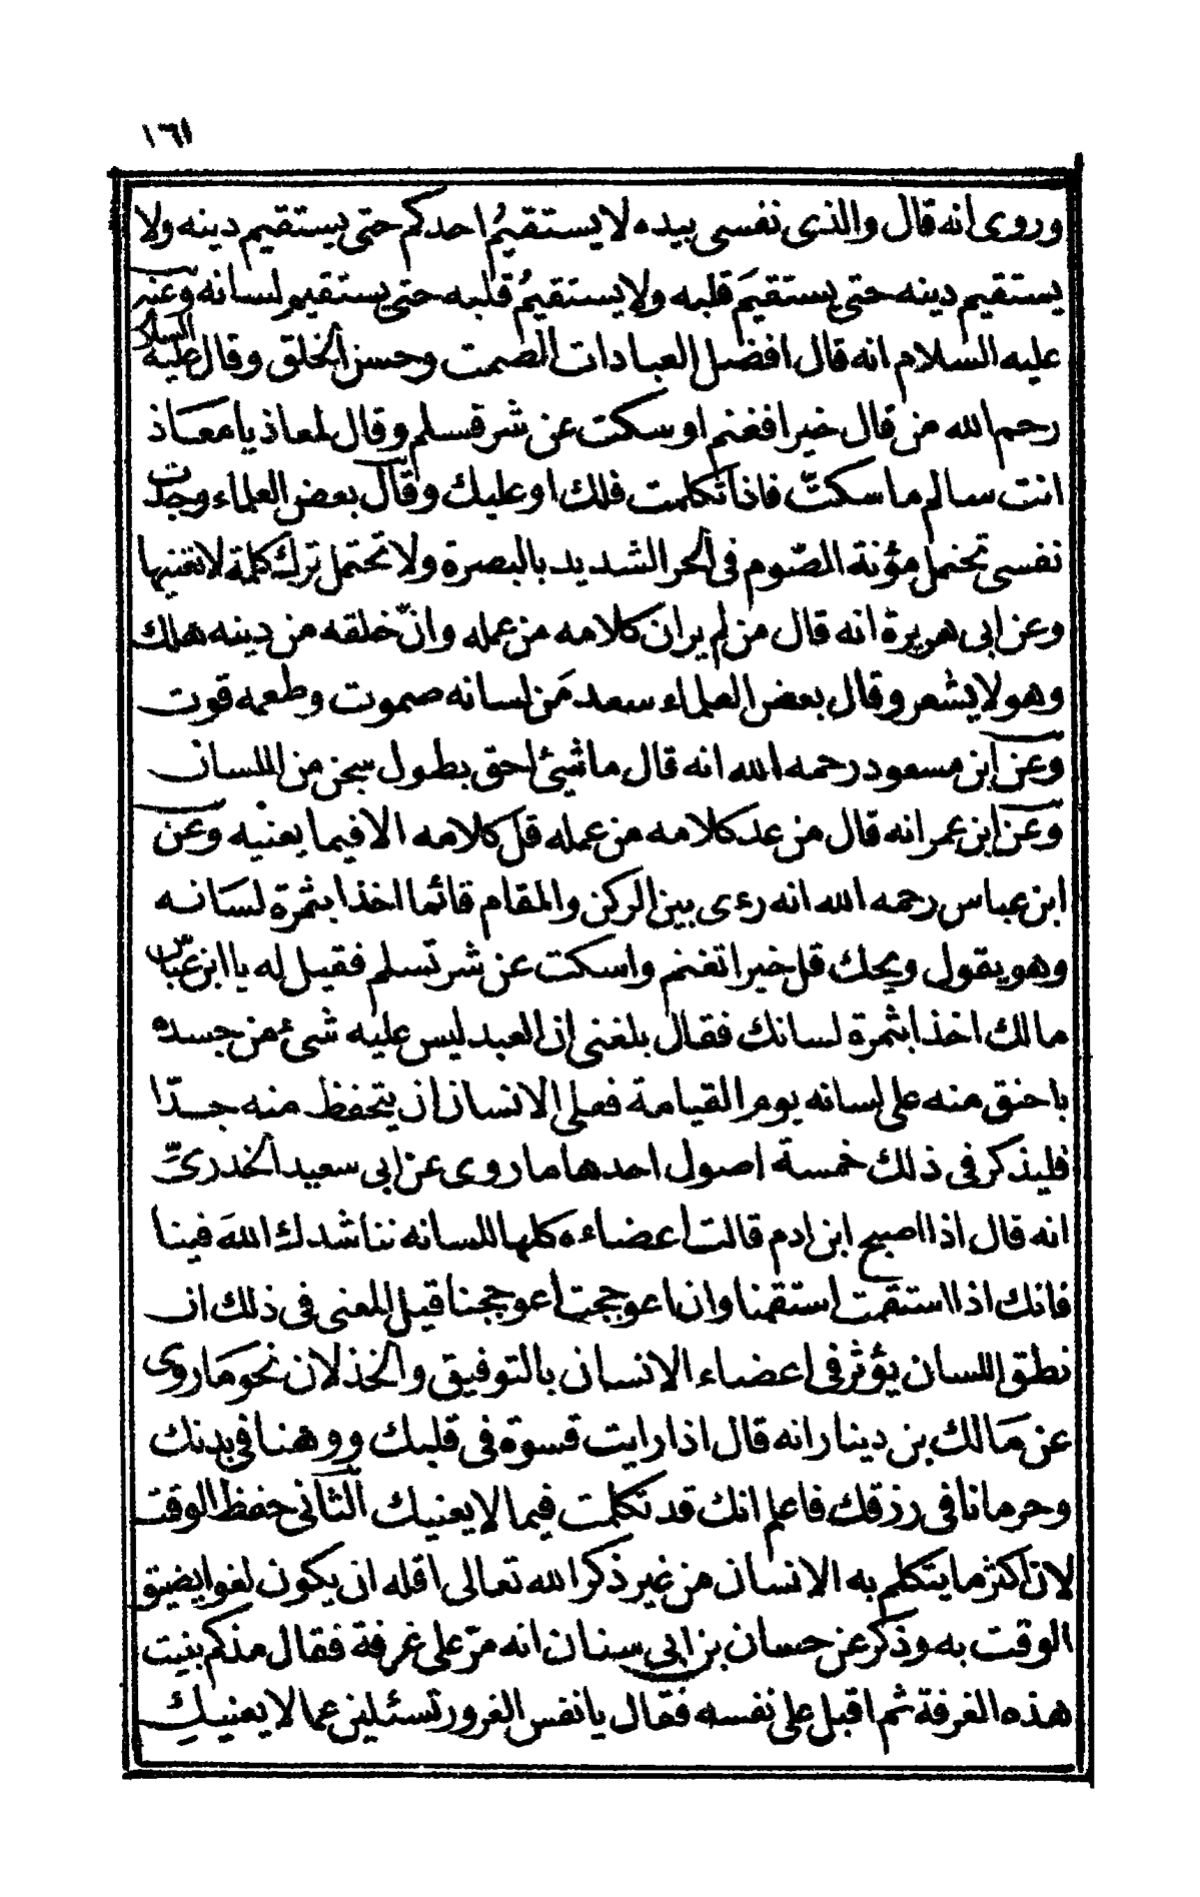 ١٦١
وروى انه قال والذى نفسى بيده لا يستقيمُ احدكم حتى يستقيم دينه ولا
يستقيم دينه حتى يستقيمَ قلبه ولا يستقيمُ قلبه حتى يستقيم لسانه وعنه
عليه السلام انه قال افضل العبادات الصمت وحسن الخلق وقال عليه السلام
رحم الله من قال خيرا فغنم او سكت عن شر فسلم وقال لمعاذ يا معاذ
انت سالم ما سكتّ فاذا تكلمت فلك او عليك وقال بعض العلماء وجدت
نفسى تحتمل مؤنة الصّوم فى الحر الشديد بالبصرة ولا تحتمل ترك كلمة لا تغنيها
وعن ابى هريرة انه قال من لم ير ان كلامه من عمله وانّ خلقه من دينه هلك
وهو لا يشعر وقال بعض العلماء سعد مَن لسانه صموت وطعمه قوت
وعن ابن مسعود رحمه الله انه قال ما شئ احق بطول سجن من اللسان
وعن ابن عمر انه قال من عد كلامه من عمله قل كلامه الا فيما يعنيه وعن
ابن عباس رحمه الله انه رءى بين الركن والمقام قائما اخذا بثمرة لسانه
وهو يقول ويحك قل خيرا تغنم واسكت عن شر تسلم فقيل له يا ابن عباس
مالك اخذا بثمرة لسانك فقال بلغنى ان العبد ليس عليه شئ من جسده
باحنق منه على لسانه يوم القيامة فعلى الانسان ان يتحفظ منه جدّا
فليذكر فى ذلك خمسة اصول احدها ما روى عن ابى سعيد الخدرىِّ
انه قال اذا اصبح ابن ادم قالت اعضاءه كلها للسانه نناشدك اللهَ فينا
فانك اذا استقمت استقمنا وان اعوججت اعوججنا قيل المعنى فى ذلك ان
نطق اللسان يؤثر فى اعضاء الانسان بالتوفيق والخذلان نحو ما روى
عن مالك بن دينار انه قال اذا رايت قسوة فى قلبك ووهنا فى بدنك
وحرمانا فى رزقك فاعلم انك قد تكلمت فيما لا يعنيك الثانى حفظ الوقت
لان اكثر ما يتكلم به الانسان من غير ذكر الله تعالى اقله ان يكون لغوا يضيق
الوقت به وذكر عن حسان بن ابى سنان انه مرّ على غرفة فقال مذكم بنيت
هذه الغرفة ثم اقبل على نفسه فقال يا نفس الغرور تسئلين عما لا يعنيكِ